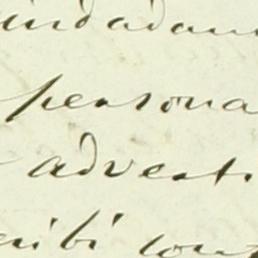 indadam
persona
advert
cribi con